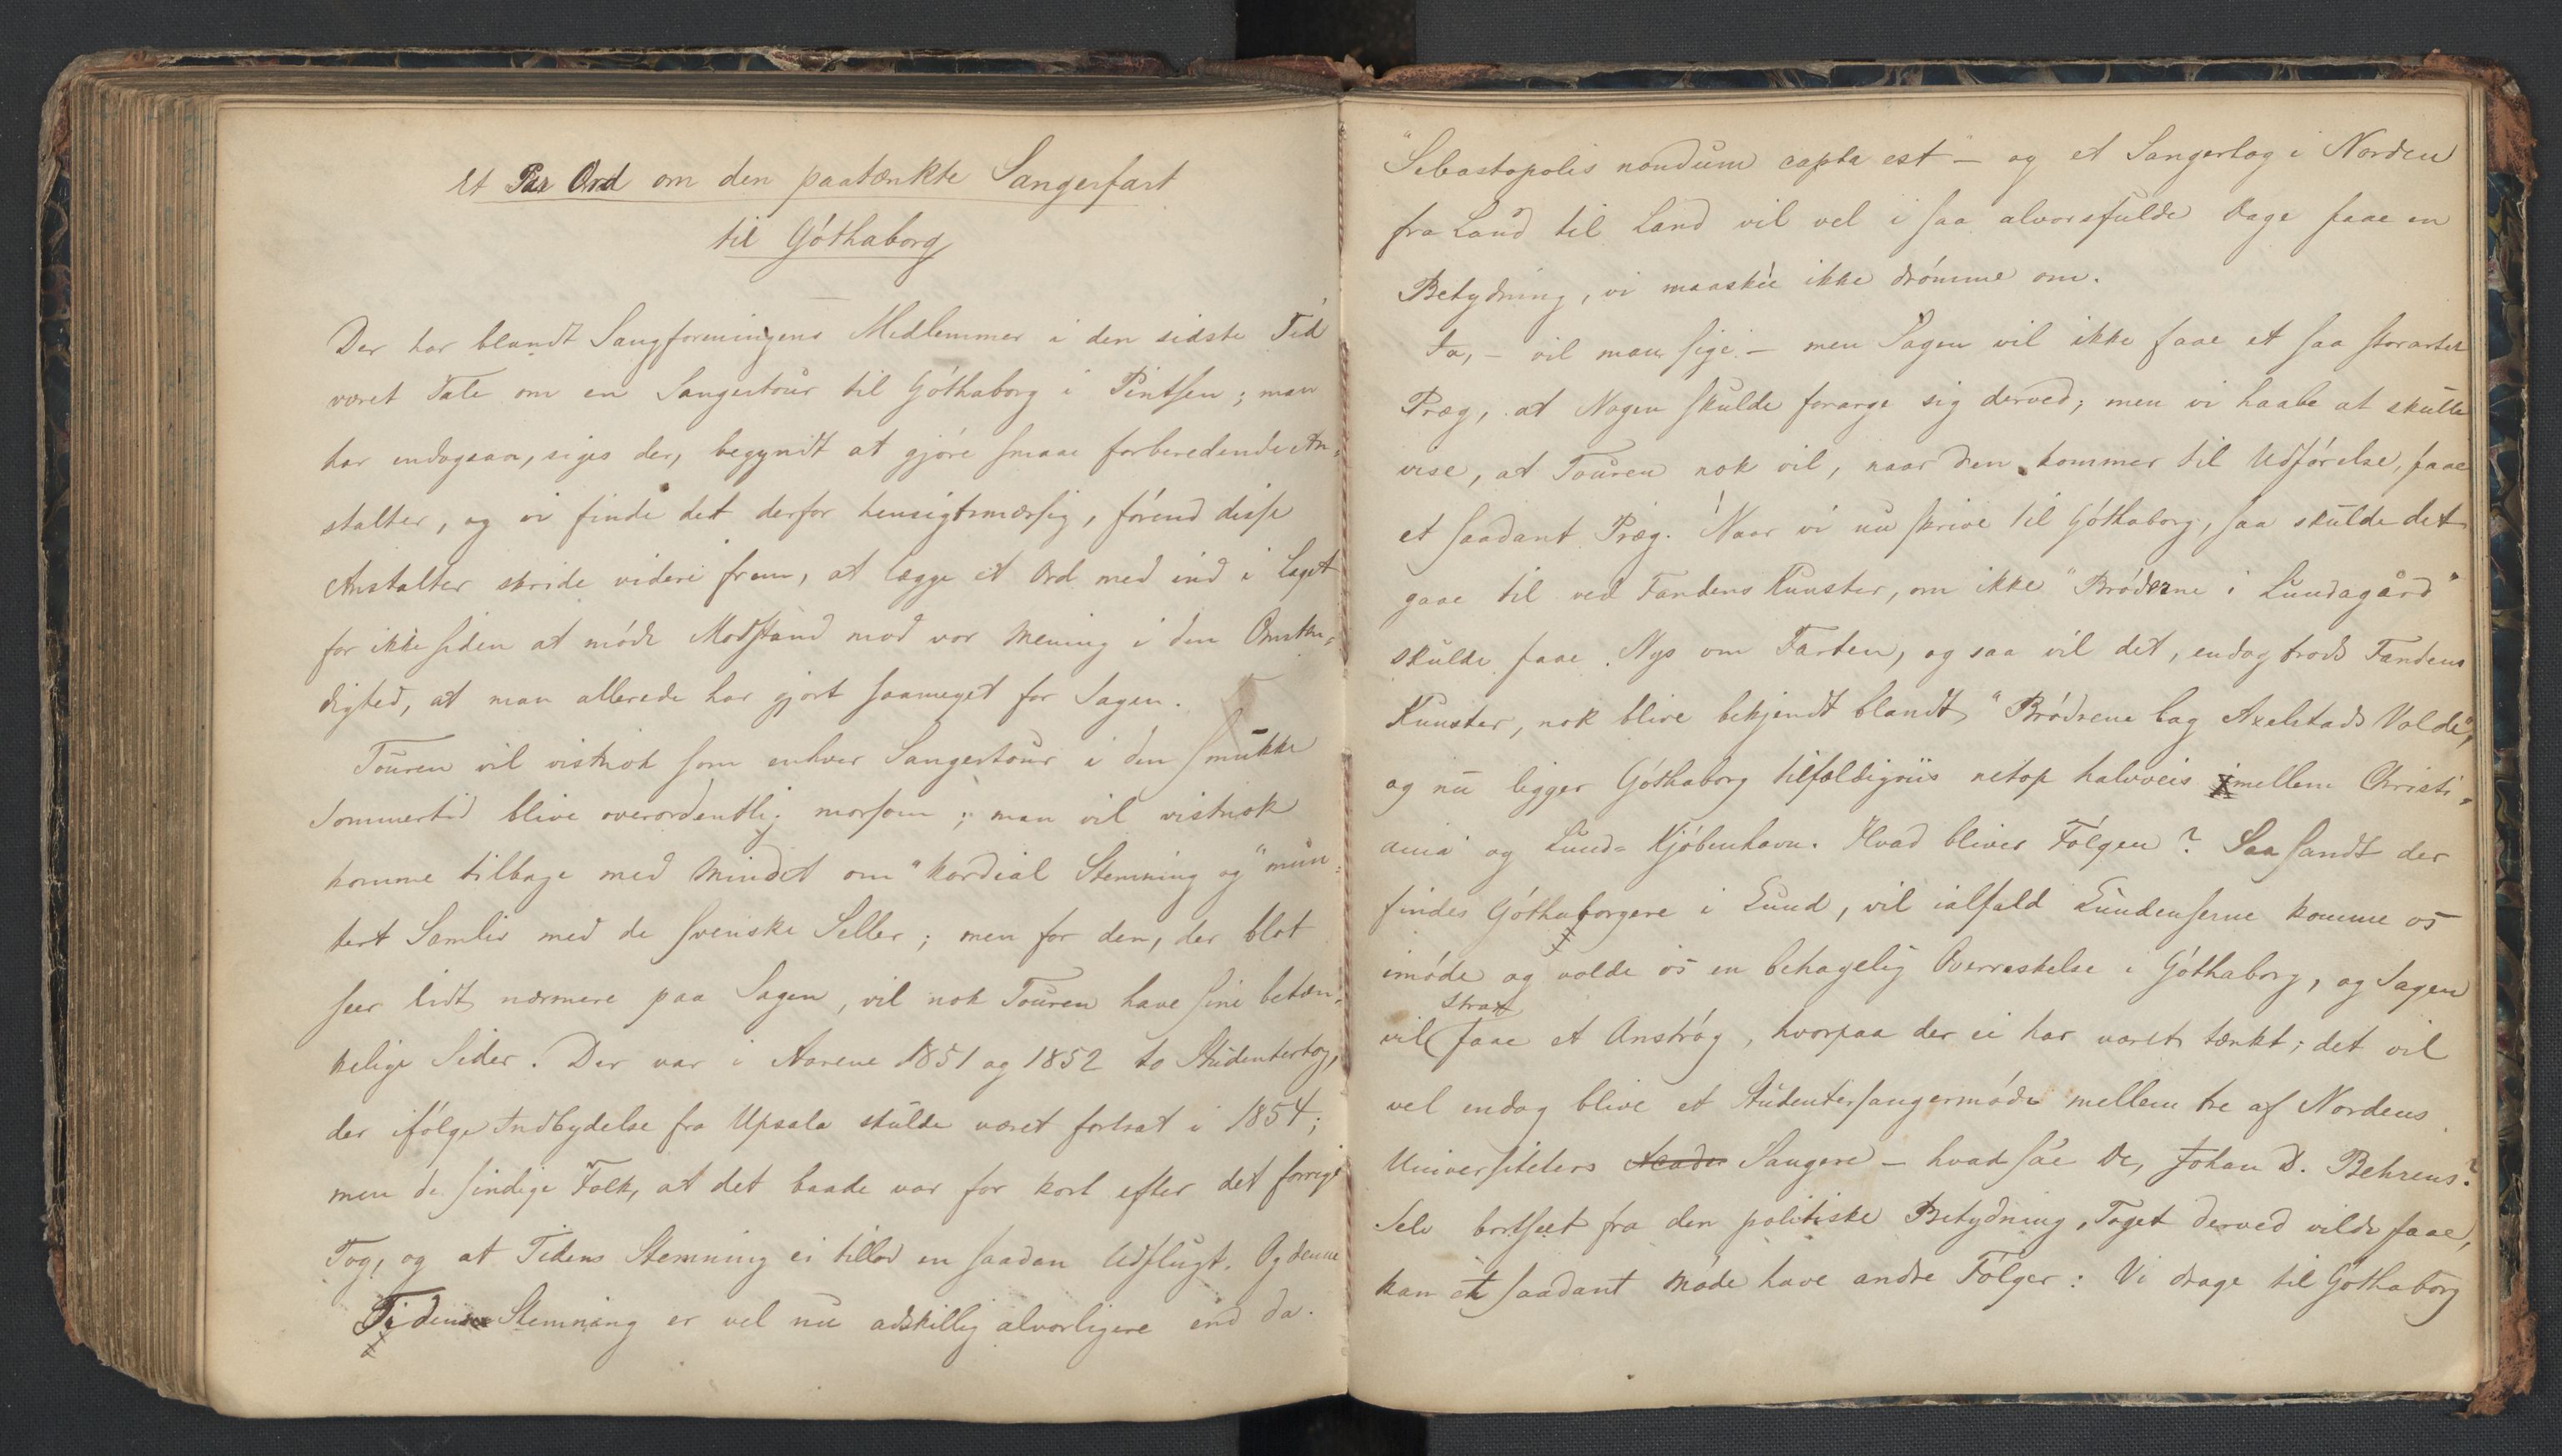 Et Par Ord om den paatænkte Sangerfart
til Góthaborg
Der har blandt Sangforeningens Medlemmer i den sidste Tid
været Tale om en Sangertour til Góthaborg i Pintsen; man
har endogsaa, siges der, begyndt at gjóre smaae forberedende An-
stalter, og vi finde det derfor hensigtsmæssig, fórend disse
Anstalter skride videre frem, at lægge et Ord med ind i Laget
for ikke siden at móde Modstand mod vor Mening i den Omstæn-
dighed, at man allerede har gjort saameget for Sagen.
Touren vil vistnok som enhver Sangertour i den smukke
Sommertid blive overordentlig morsom; man vil vistnok
komme tilbage med Mindet om "kordial Stemning og" mun-
tert Samliv med de svenske Seller; men for den, der blot
seer lidt nærmere paa Sagen, vil nok Touren have sine betæn-
kelige Sider. Der var i Aarene 1851 og 1852 to Studentertog,
der ifólge Indbydelse fra Upsala skulde været fortsat i 1854;
men de sindige Folk, at det baade var for kort efter det forrige
Tog, og at Tidens Stemning ei tillod en saadan Udflugt. Og denne
Tidens Stemning er vel nu adskillig alvorligere end da.
"Sebastopolis nondum capta est" – og et Sangertog i Norden
fra Land til Land vil vel i saa alvorsfulde Dage faae en
Betydning, vi maaskée ikke drómme om.
Ja, – vil man sige – men Sagen vil ikke faae et saa storartet
Præg, at Nogen skulde forarge sig derved; men vi haabe at skulle
vise, at Touren nok vil, naar den kommer til Udfórelse, faae
et saadant Præg. Naar vi nu skrive til Góthaborg, saa skulde det
gaae til ved Fandens Kunster, om ikke "Bróderne i Lundagård"
skulde faae Nys om Farten, og saa vil det, endog trods Fandens
Kunster, nok blive bekjendt blandt "Bródrene bag Axelstads Volde",
og nu ligger Góthaborg tilfældigviis netop halvveis imellem Christi-
ania og Lund-Kjóbenhavn. Hvad bliver Fólgen? Saasandt der
findes Góthaborgere i Lund, vil ialfald Lundenserne komme os
imóde og volde os en behagelig Overraskelse i Góthaborg, og Sagen
vil strax faae et Anstróg, hvorpaa der ei har været tænkt; det vil
vel endog blive et Studentersangermóde mellem tre af Nordens
Universiteters Sangere – hvad sáe De, Johan D. Behrens?
Selv bortseet fra den politiske Betydning, Toget derved vilde faae,
kan et saadant Móde have andre Fólger: Vi drage til Góthaborg